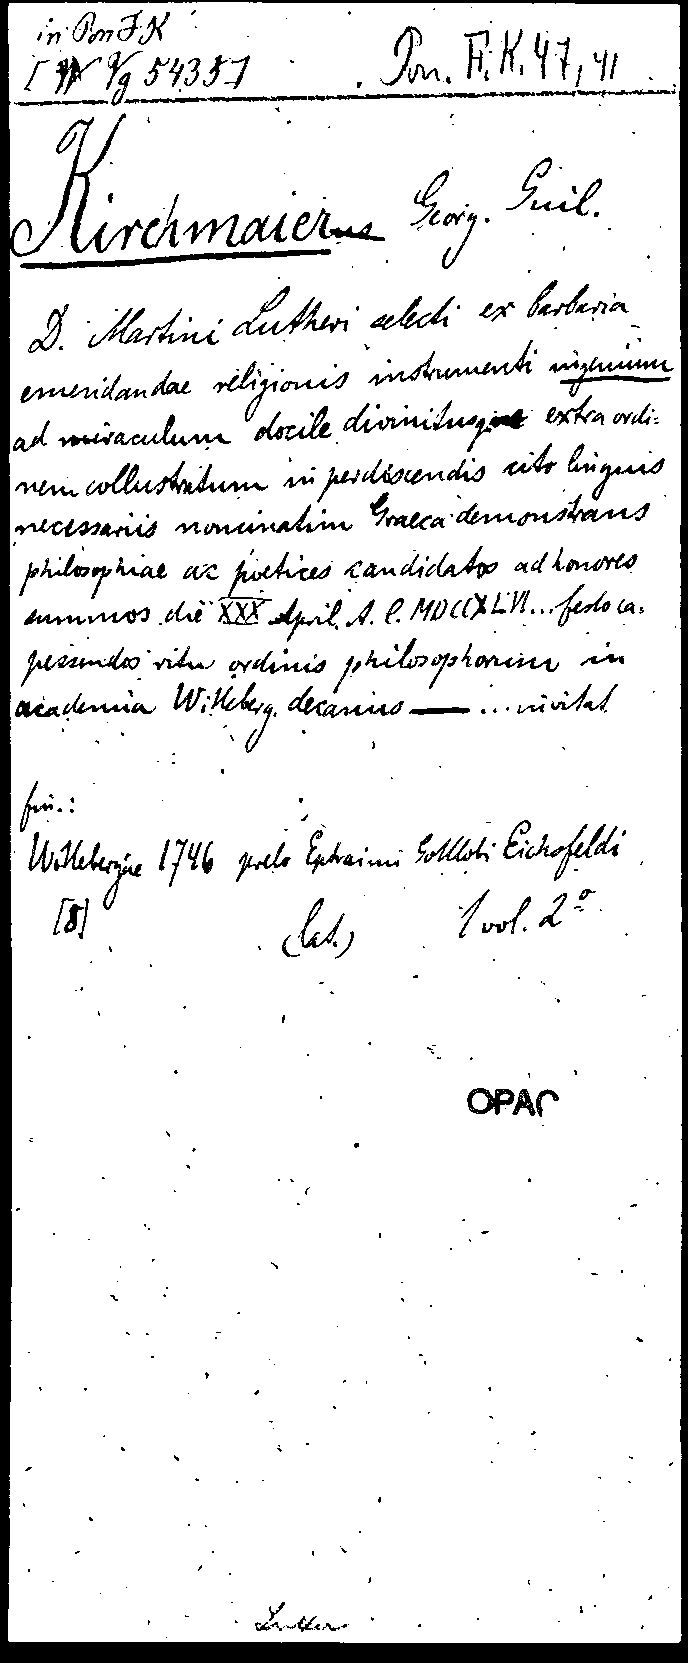 in Pon F. K
[Vg 5435]
Pon. F. K. 47, 41
Kirchmaierus Georg. Guil.
D. Martini Lutheri selecti ex barbaria
emendandae religionis instrumenti ingenium
ad miraculum docile divinitusque extra ordi=
nem collustratum in perdiscendis cito linguis
necessariis nominatim Graeca demonstrans
philosophiae ac poetices candidatos ad honores
summos die XXX April. A. C. MDCCXLVI... festo ca=
pessendos ritu ordinis philosophorum in
academia Witteberg. decanus — ... invitat
fin.:
Wittebergae 1746 prelo Ephraimi Gottlobi Eichsfeldi
[8] (lat.) 1 vol. 2º
OPAC
Luther